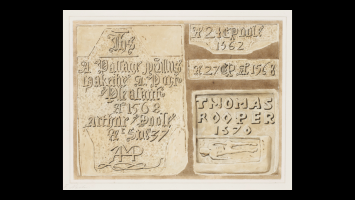 IHS
A Passage perillus
makethe a Port
Pleasant
A 1568
Arthur Poole
Æ Sue 37
AMP
E Poole
1562
A 1568
THOMAS
ROOPER
1570